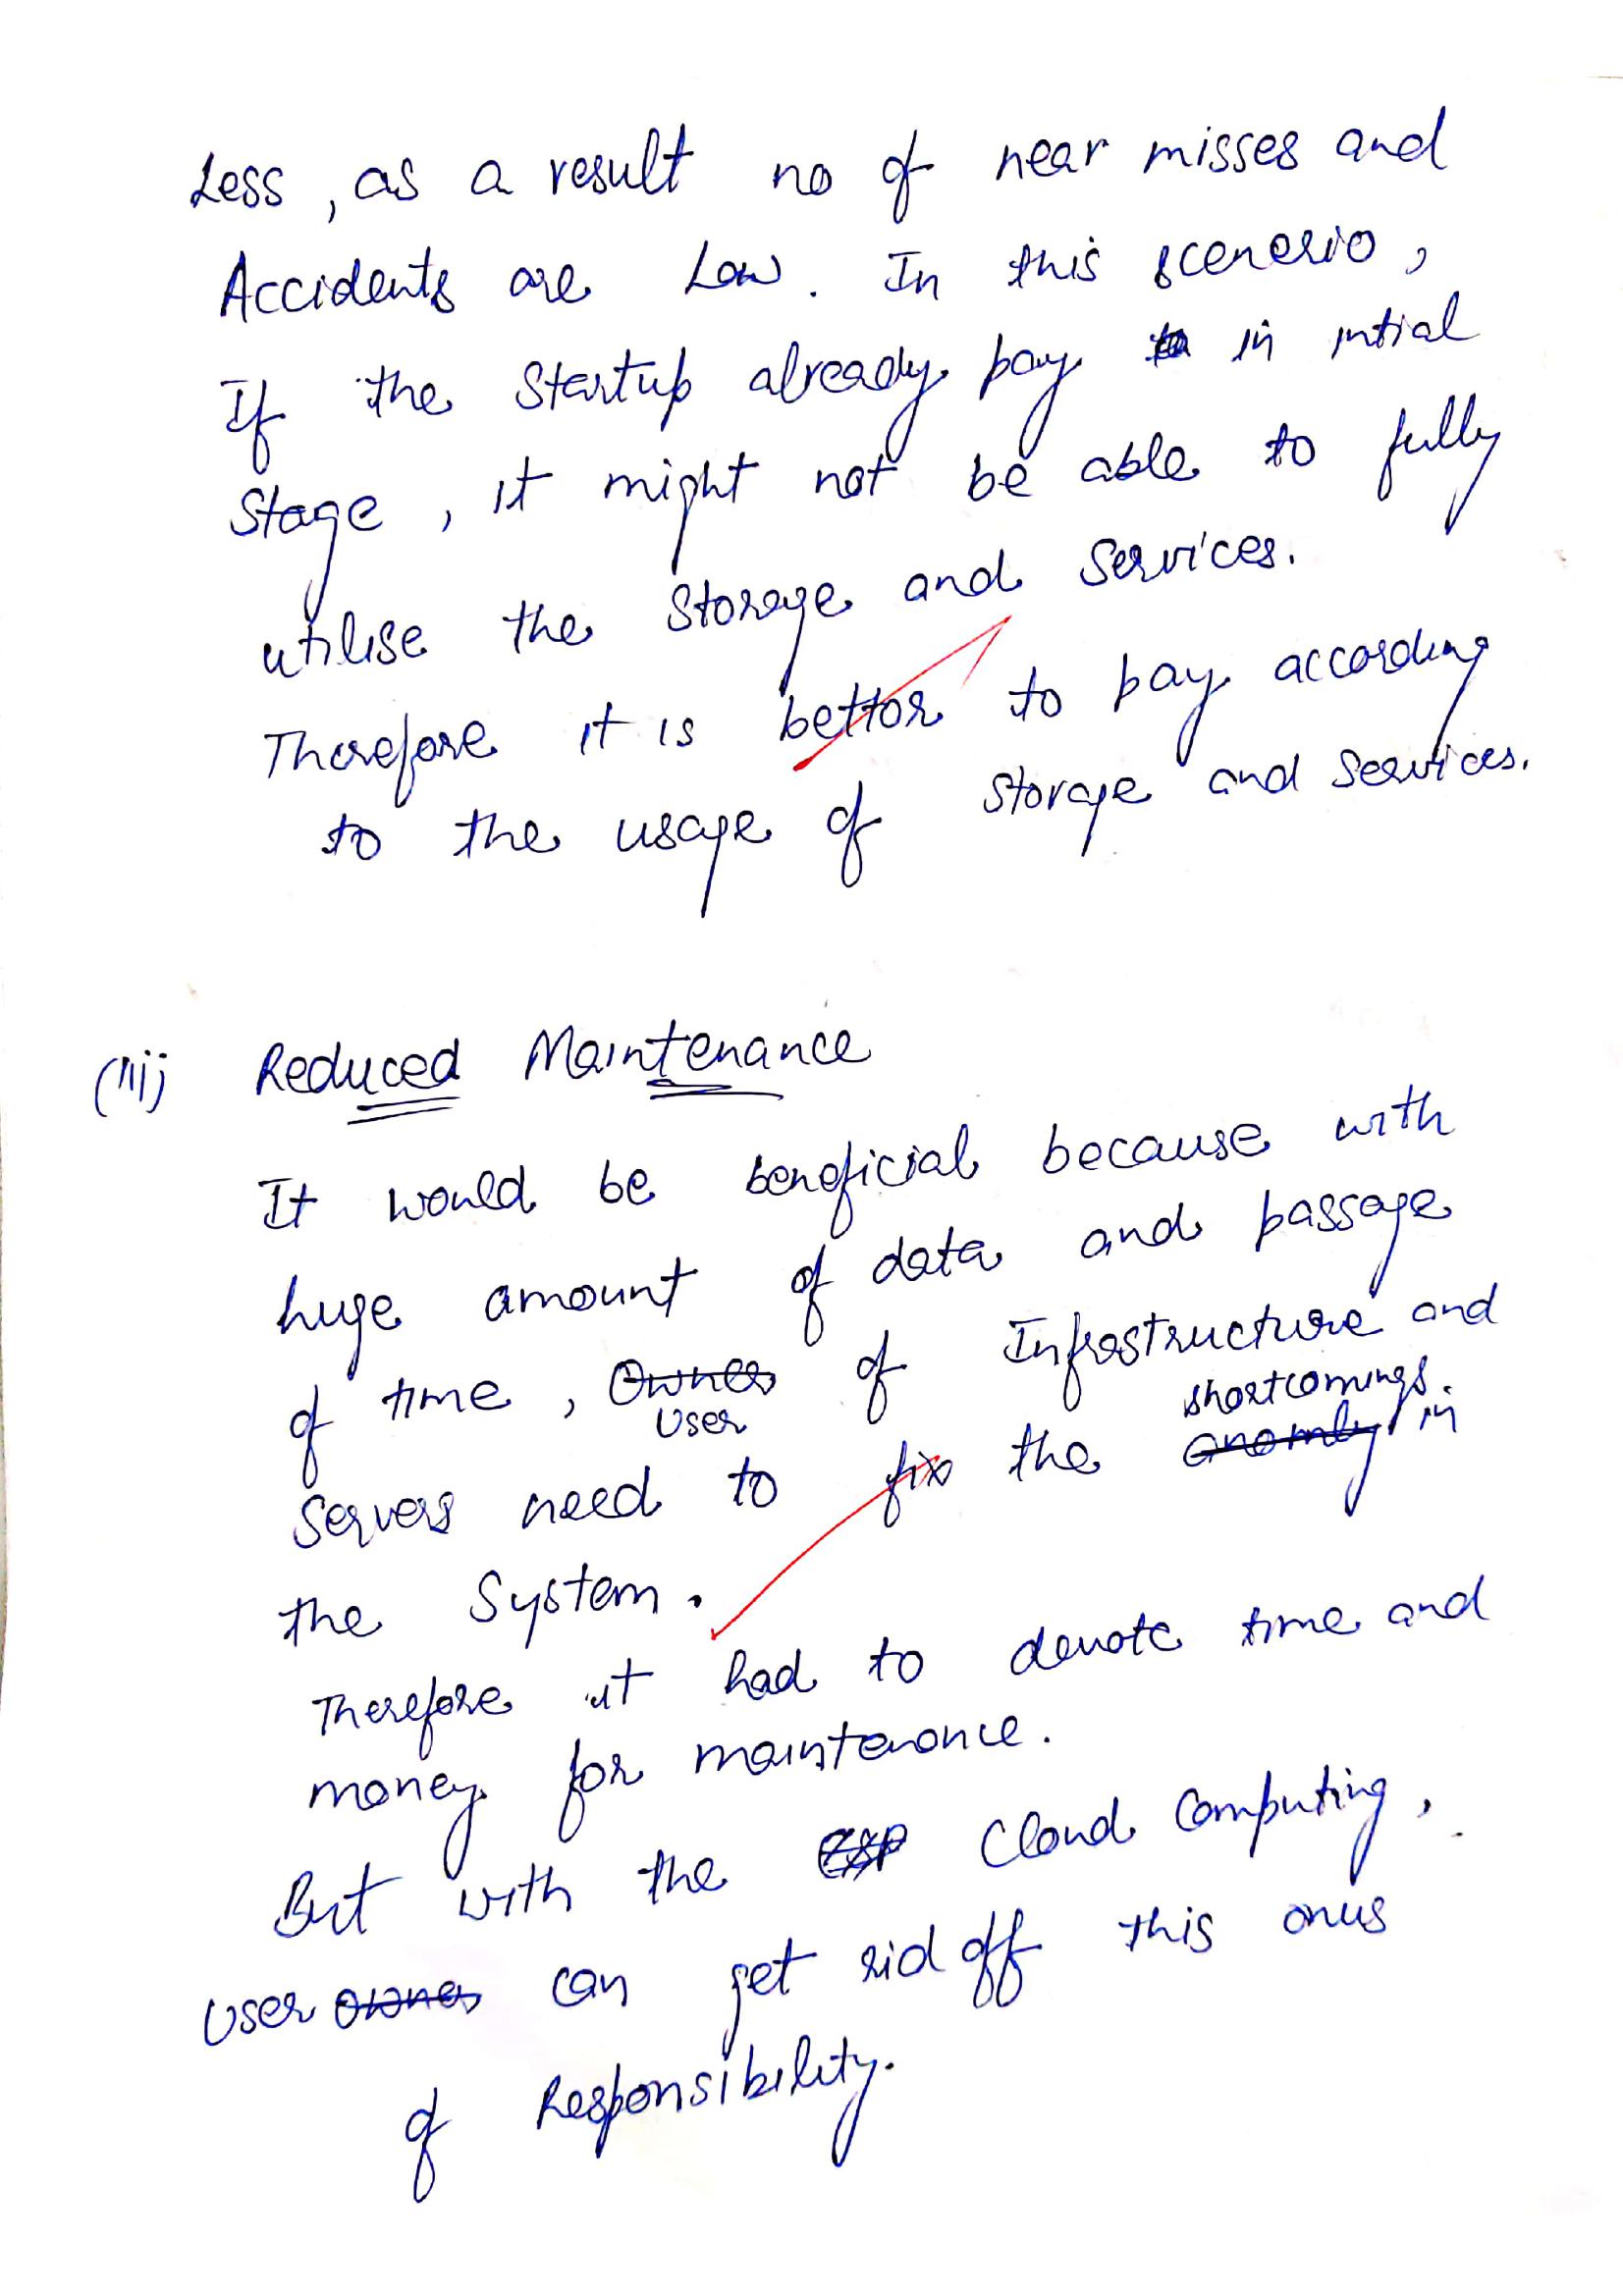 Less, as a result no of near misses and
Accidents are Low. In this scenerio,
If the Startup already pay in intial
Stage, it might not be able to fully
utilise the Storage and Services.
Therefore it is better to pay according
to the usage of Storage and Services.
(iii) Reduced Maintenance
It would be beneficial because with
huge amount of data and passage
of time, Owner of Infrastructure and
User shortcomings.
Servers need to fix the anomly in
the System.
Therefore it had to devote time and
money for maintenance.
But with the CSP Cloud Computing,
User owner can get rid off this onus
of Responsibility.